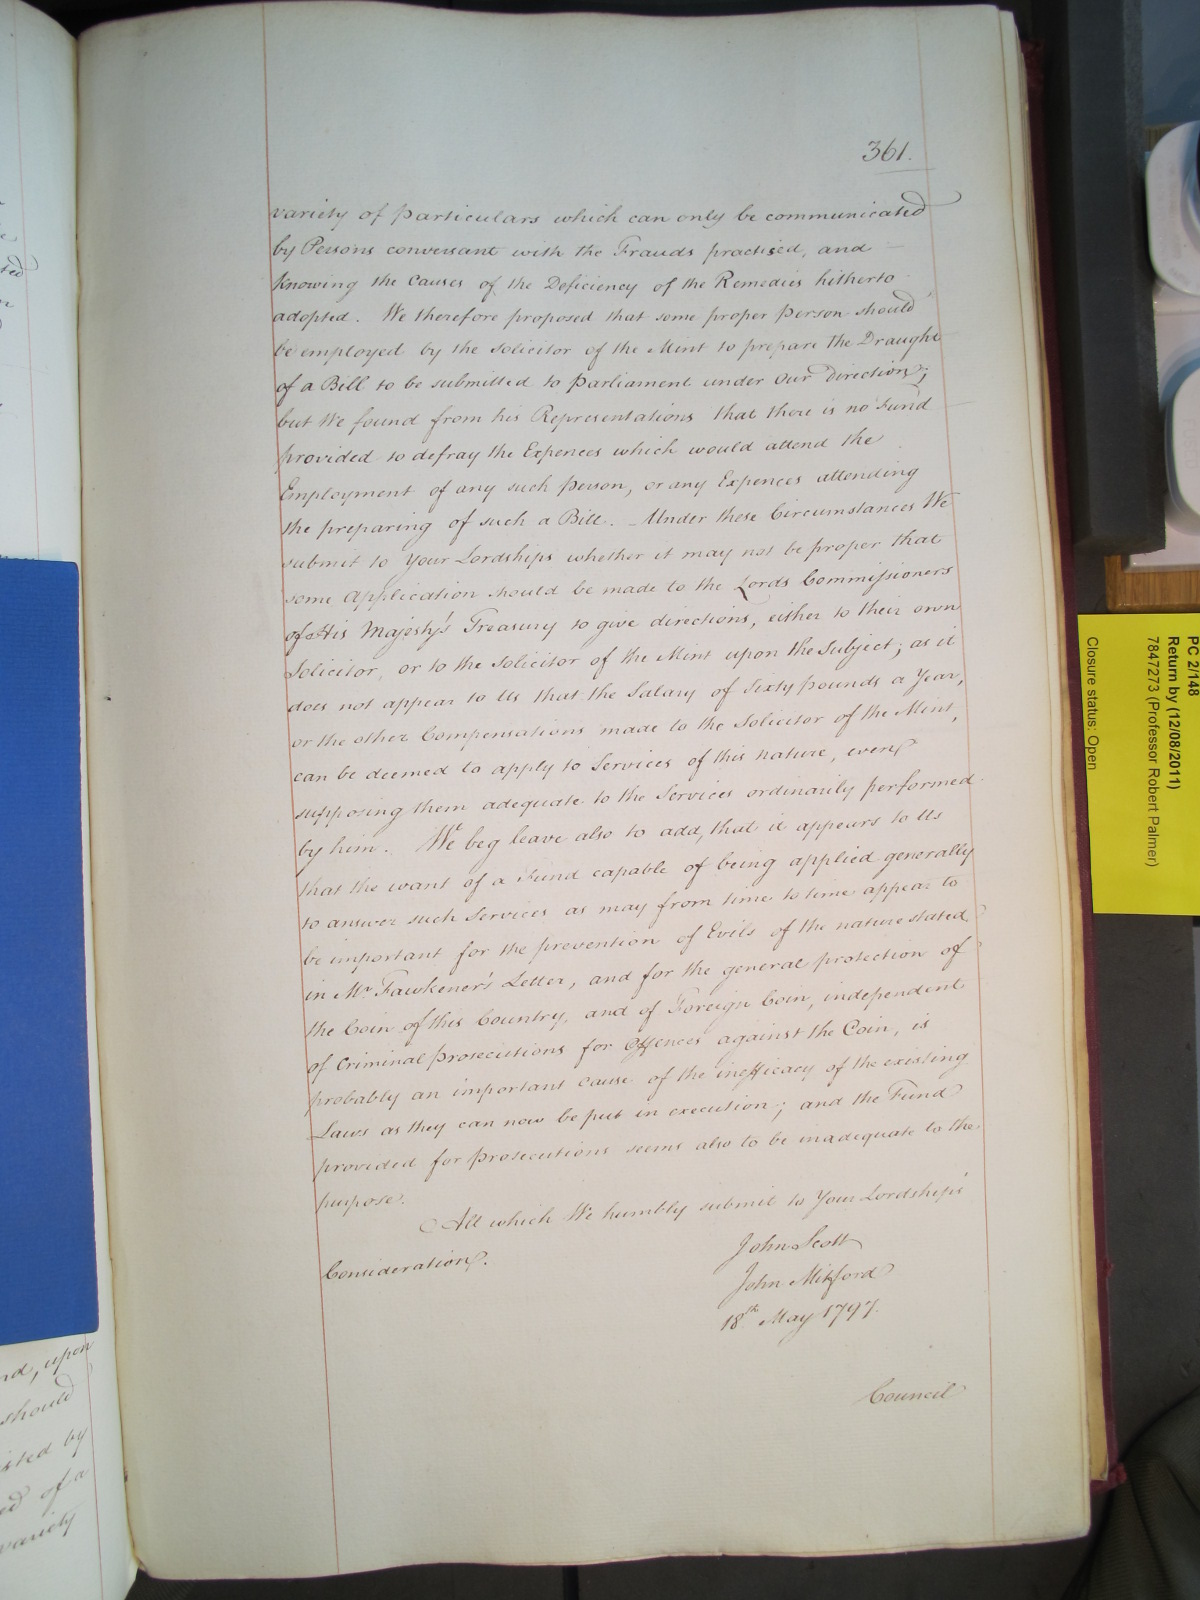 361.
variety of particulars which can only be communicated
by Persons conversant with the Frauds practised, and
knowing the Causes of the Deficiency of the Remedies hitherto
adopted. We therefore proposed that some proper Person should
be employed by the Solicitor of the Mint to prepare the Draught
of a Bill to be submitted to Parliament under our direction;
but We found from his Representations that there is no Fund
provided to defray the Expences which would attend the
Employment of any such Person, or any Expences attending
the preparing of such a Bill. Under these Circumstances We
submit to Your Lordships whether it may not be proper that
some application should be made to the Lords Commissioners
of His Majesty's Treasury to give directions, either to their own
Solicitor, or to the Solicitor of the Mint upon the Subject; as it
does not appear to Us that the Salary of Sixty pounds a Year,
or the other Compensations made to the Solicitor of the Mint,
can be deemed to apply to Services of this nature, even
supposing them adequate to the Services ordinarily performed
by him. We beg leave also to add, that it appears to Us
that the want of a Fund capable of being applied generally
to answer such Services as may from time to time appear to
be important for the prevention of Evils of the nature stated
in Mr. Fawkener's Letter, and for the general protection of
the Coin of this Country, and of Foreign Coin, independent
of Criminal prosecutions for Offences against the Coin, is
probably an important cause of the inefficacy of the existing
Laws as they can now be put in execution; and the Fund
provided for prosecutions seems also to be inadequate to the
purpose.
All which We humbly submit to Your Lordships'
Consideration.
John Scott
John Mitford
18th May 1797.
Council
nd, upon
should
by
of a
variety
PC 2/148
Return by (12/08/2011)
7847273 (Professor Robert Palmer)
Closure status: Open